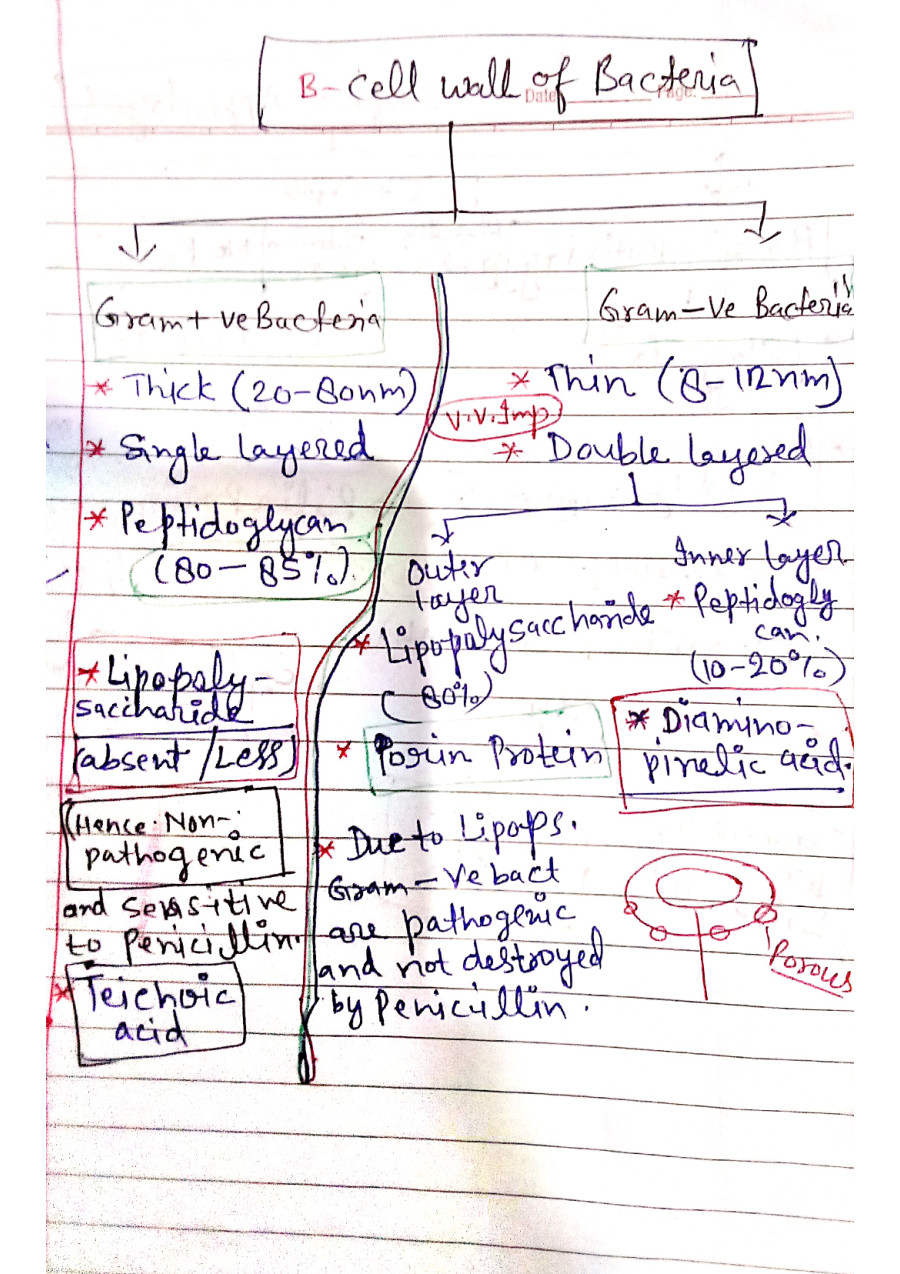 B- Cell wall of Bacteria
Date Page:
Gram + ve Bacteria
* Thick (20-80nm)
* Single layered
* Peptidoglycan
(80-85%).
* Lipopoly-
saccharide
(absent / Less)
(Hence: Non-
pathogenic
and sensitive
to Penicillin.
* Teichoic
acid
V.V.Imp
Gram - Ve Bacteria
* Thin (8-12nm)
* Double layered
Outer
layer
* Lipopolysaccharide
(80%)
* Porin Protein
* Due to Lipops.
Gram - Ve bact
are pathogenic
and not destroyed
by Penicillin.
Inner layer
* Peptidogly
can.
(10-20%)
* Diamino-
pimelic acid.
Porous